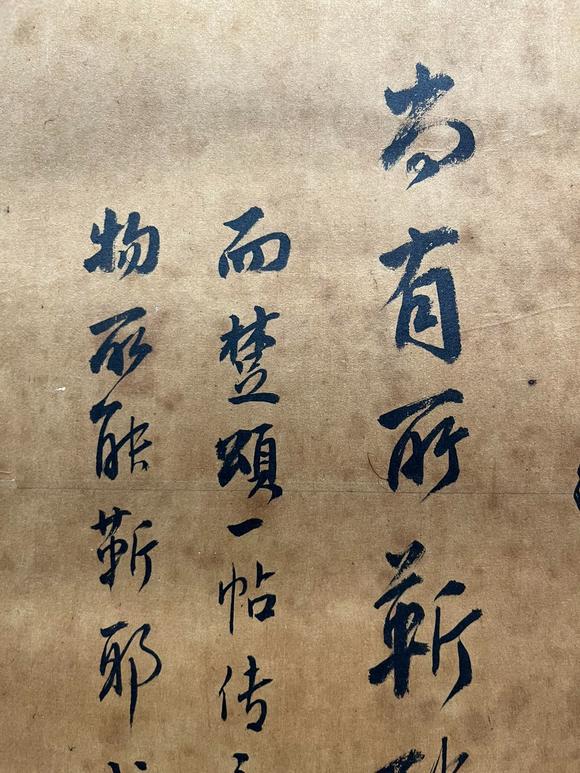 尚有所靳
而楚頌一帖传
物所能靳耶